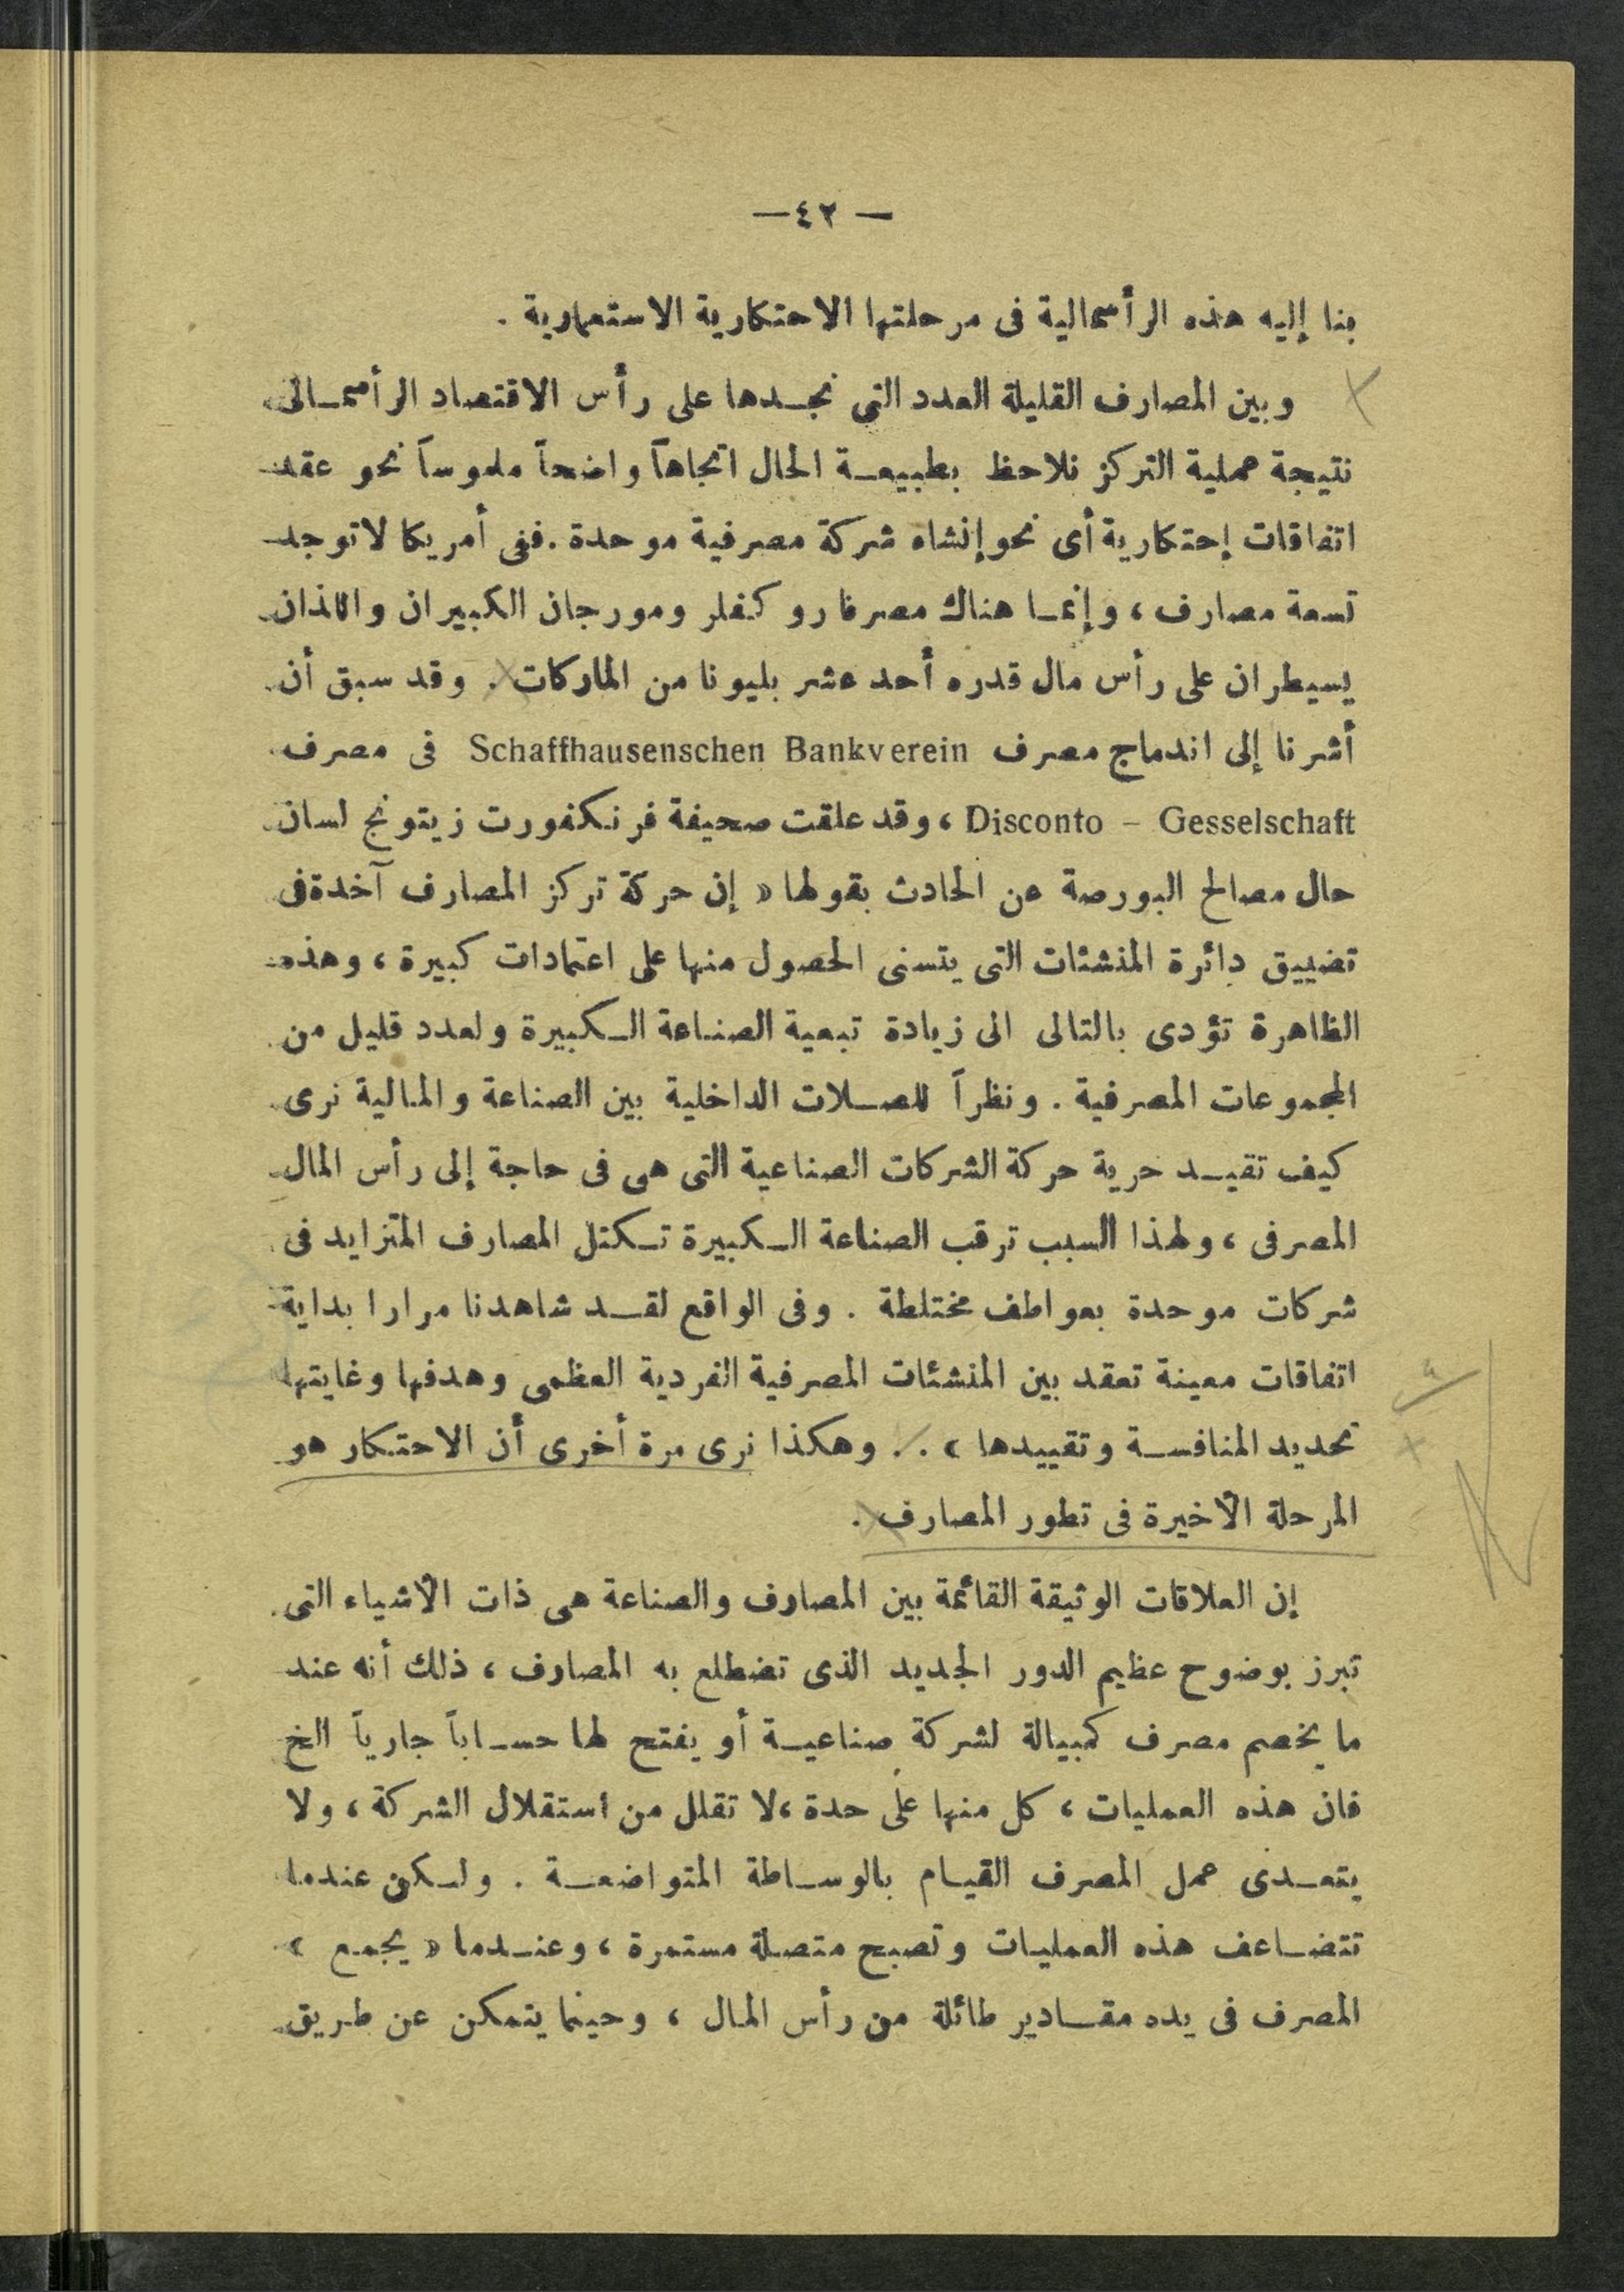 — ٤٢ —
بنا إليه هذه الرأسمالية فى مرحلتها الاحتكارية الاستعمارية .
وبين المصارف القليلة العدد التى نجدها على رأس الاقتصاد الرأسمالى
نتيجة عملية التركز نلاحظ بطبيعة الحال اتجاهاً واضحاً ملموساً نحو عقد
اتفاقات إحتكارية أى نحو إنشاء شركة مصرفية موحدة . ففى أمريكا لا توجد
تسعة مصارف ، وإنما هناك مصرفا روكفلر ومورجان الكبيران واللذان
يسيطران على رأس مال قدره أحد عشر بليونا من الماركات . وقد سبق أن
أشرنا إلى اندماج مصرف Schaffhausenschen Bankverein فى مصرف
Disconto – Gesselschaft ، وقد علقت صحيفة فرنكفورت زيتونج لسان
حال مصالح البورصة عن الحادث بقولها « إن حركة تركز المصارف آخدة فى
تضييق دائرة المنشئات التى يتسنى الحصول منها على اعتمادات كبيرة ، وهذه
الظاهرة تؤدى بالتالى الى زيادة تبعية الصناعة الكبيرة ولعدد قليل من
المجموعات المصرفية . ونظراً للصلات الداخلية بين الصناعة والمالية نرى
كيف تقيد حرية حركة الشركات الصناعية التى هى فى حاجة إلى رأس المال
المصرفى ، ولهذا السبب ترقب الصناعة الكبيرة تكتل المصارف المتزايد فى
شركات موحدة بعواطف مختلطة . وفى الواقع لقد شاهدنا مرارا بداية
اتفاقات معينة تعقد بين المنشئات المصرفية الفردية العظمى وهدفها وغايتها
تحديد المنافسة وتقييدها » . وهكذا نرى مرة أخرى أن الاحتكار هو
المرحلة الأخيرة فى تطور المصارف .
إن العلاقات الوثيقة القائمة بين المصارف والصناعة هى ذات الأشياء التى
تبرز بوضوح عظيم الدور الجديد الذى تضطلع به المصارف ، ذلك أنه عند
ما يخصم مصرف كمبيالة لشركة صناعية أو يفتح لها حساباً جارياً الخ
فان هذه العمليات ، كل منها على حدة ، لا تقلل من استقلال الشركة ، ولا
يتعدى عمل المصرف القيام بالوساطة المتواضعة . ولكن عندما
تتضاعف هذه العمليات وتصبح متصلة مستمرة ، وعندما « يجمع »
المصرف فى يده مقادير طائلة من رأس المال ، وحينما يتمكن عن طريق